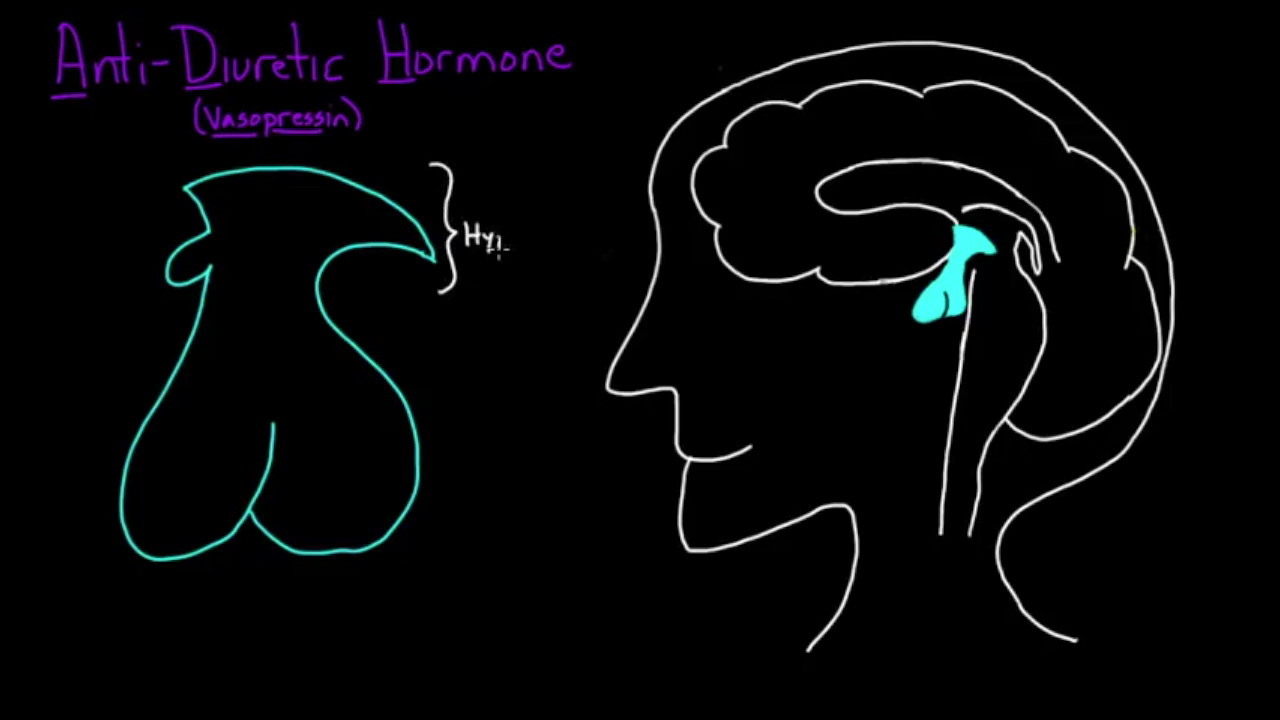 Anti-Diuretic Hormone
(Vasopressin)
Hy